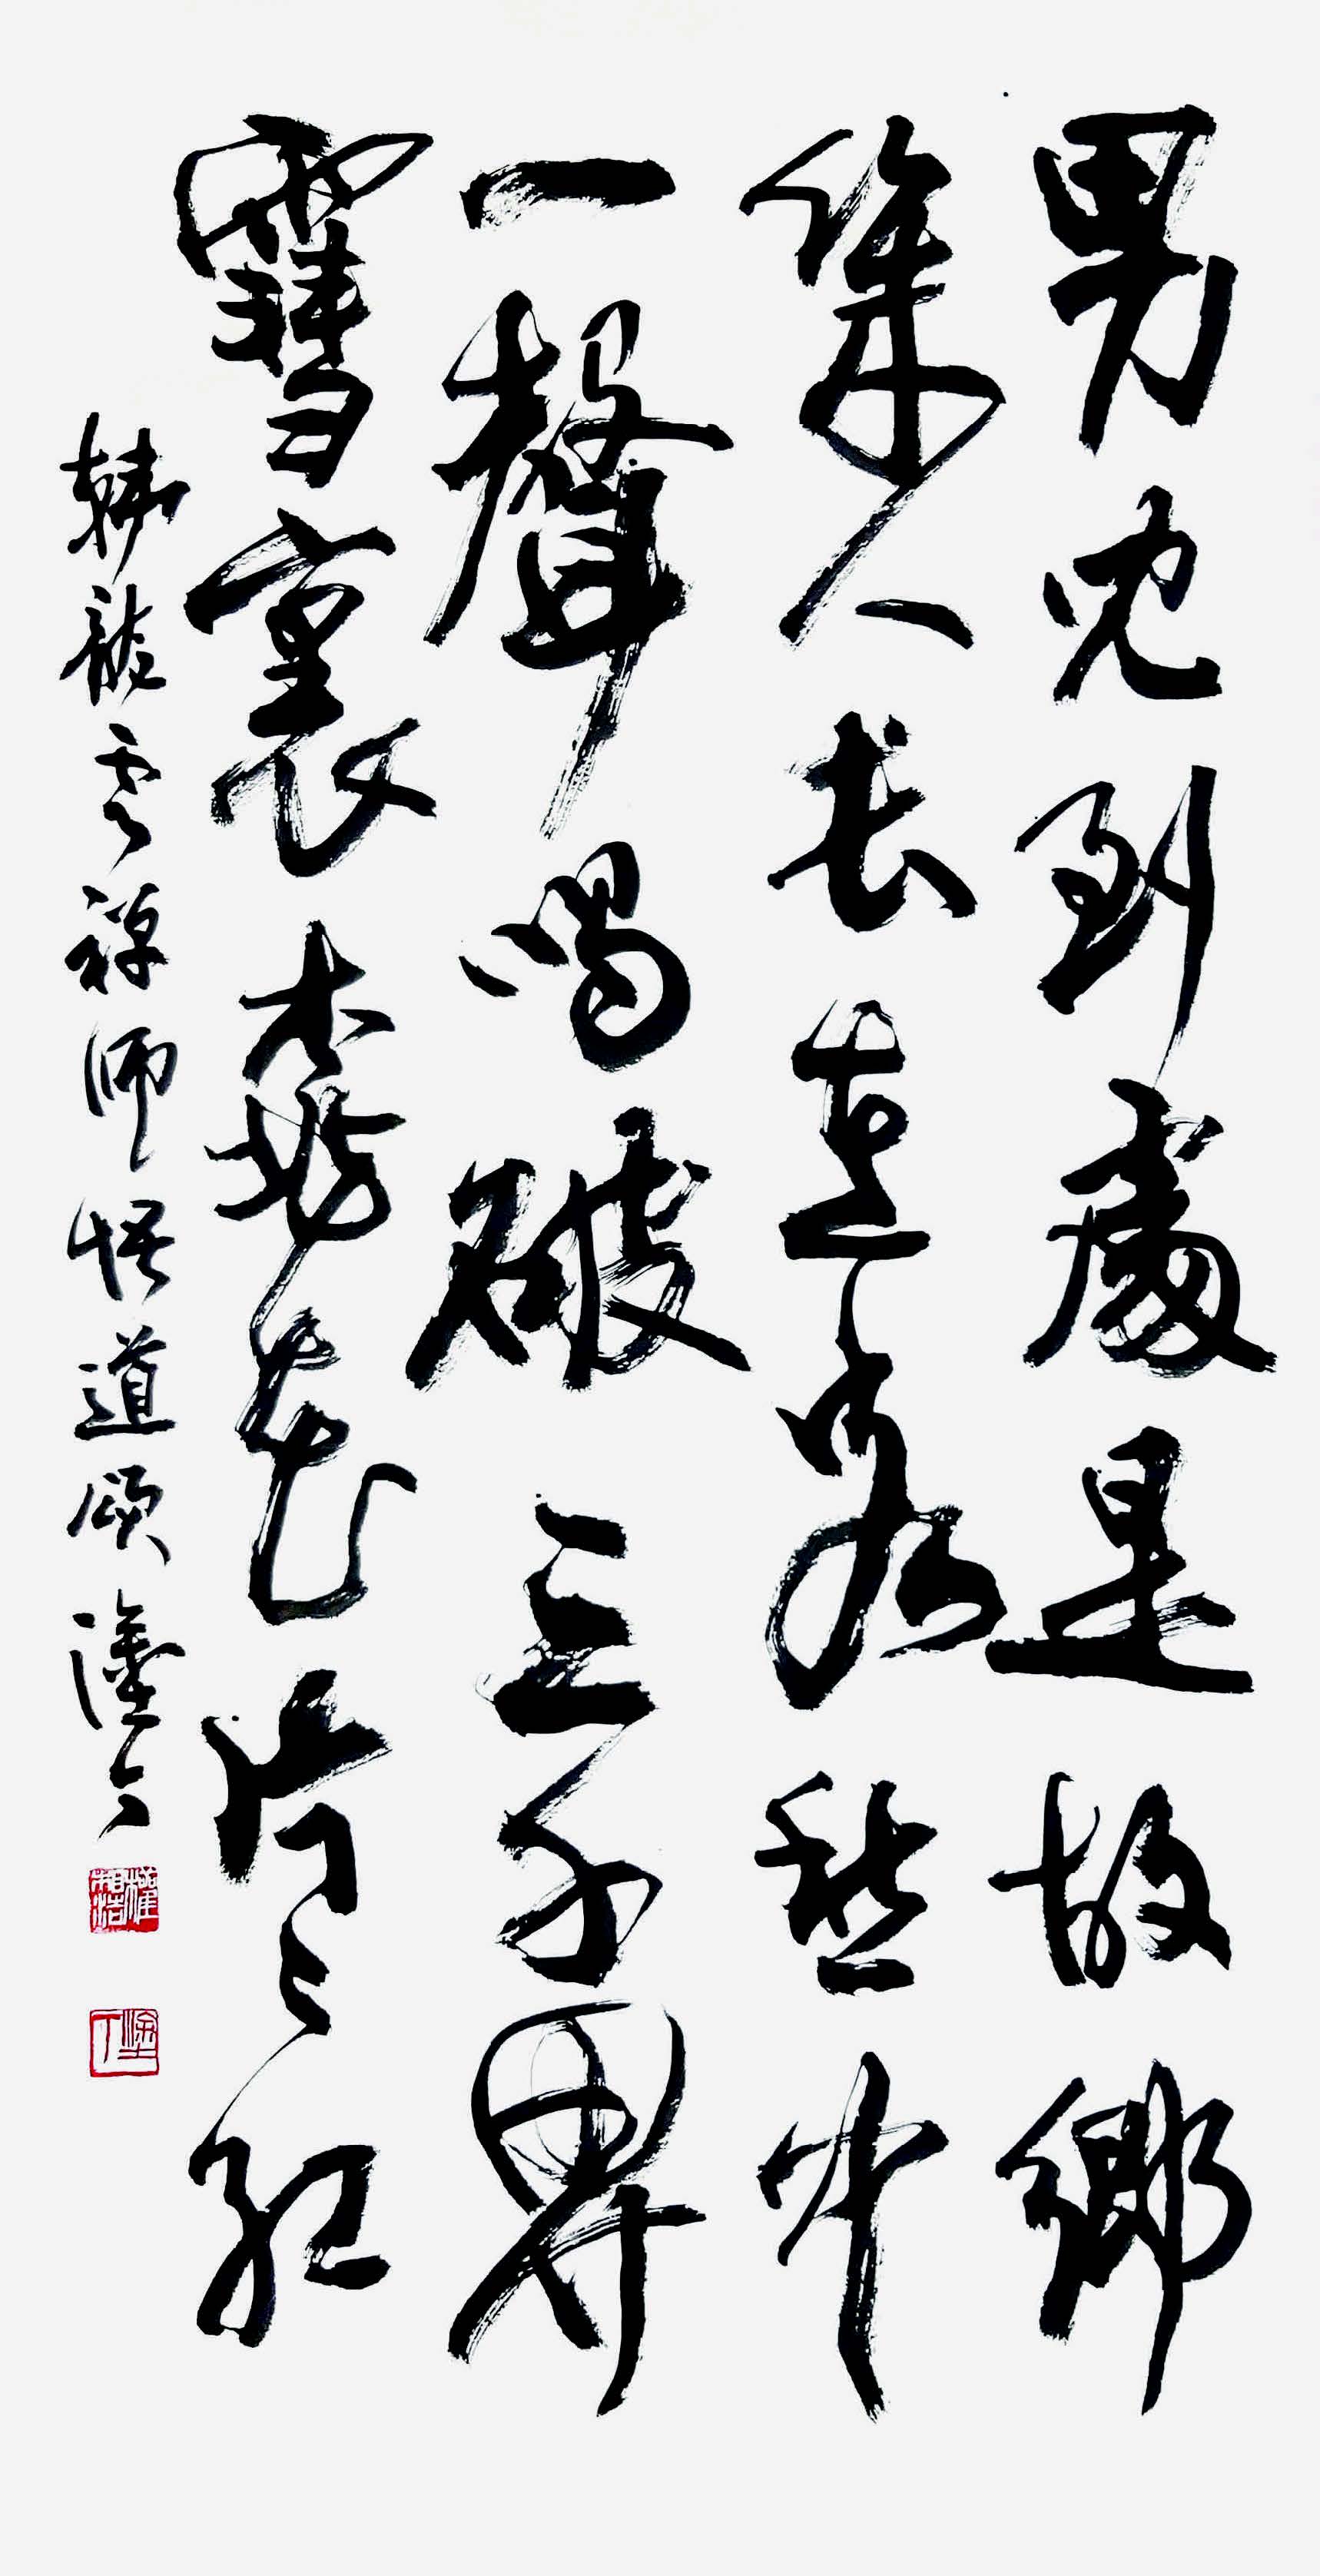 男兒到處是故鄉
幾人長在客愁中
一聲喝破三千界
雪裏桃花片々紅
韓龍雲禪師悟道頌 塗丁
權相浩
塗丁